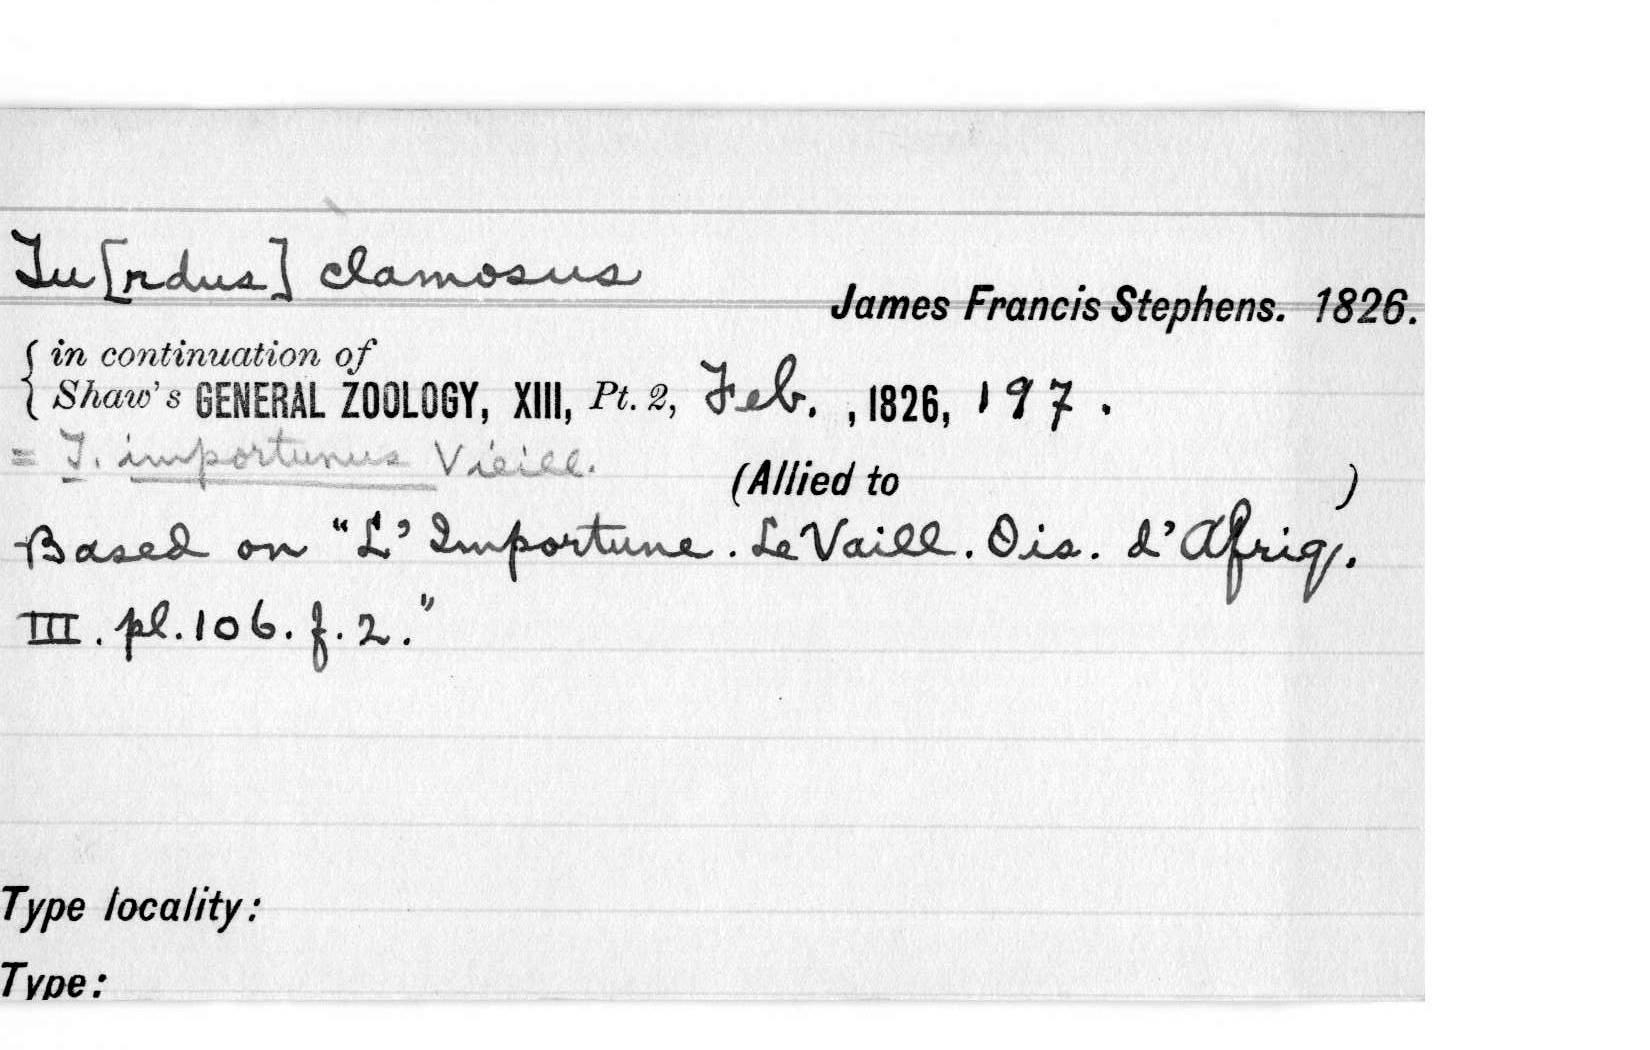 Tu[rdus] clamosus
James Francis Stephens. 1826.
in continuation of
Shaw's GENERAL ZOOLOGY, XIII, Pt. 2, Feb. , 1826, 197.
= T. importunus Vieill.
(Allied to )
Based on "L'Importune. Le Vaill. Ois. d'Afriq.
III. pl. 106. f. 2."
Type locality:
Type: